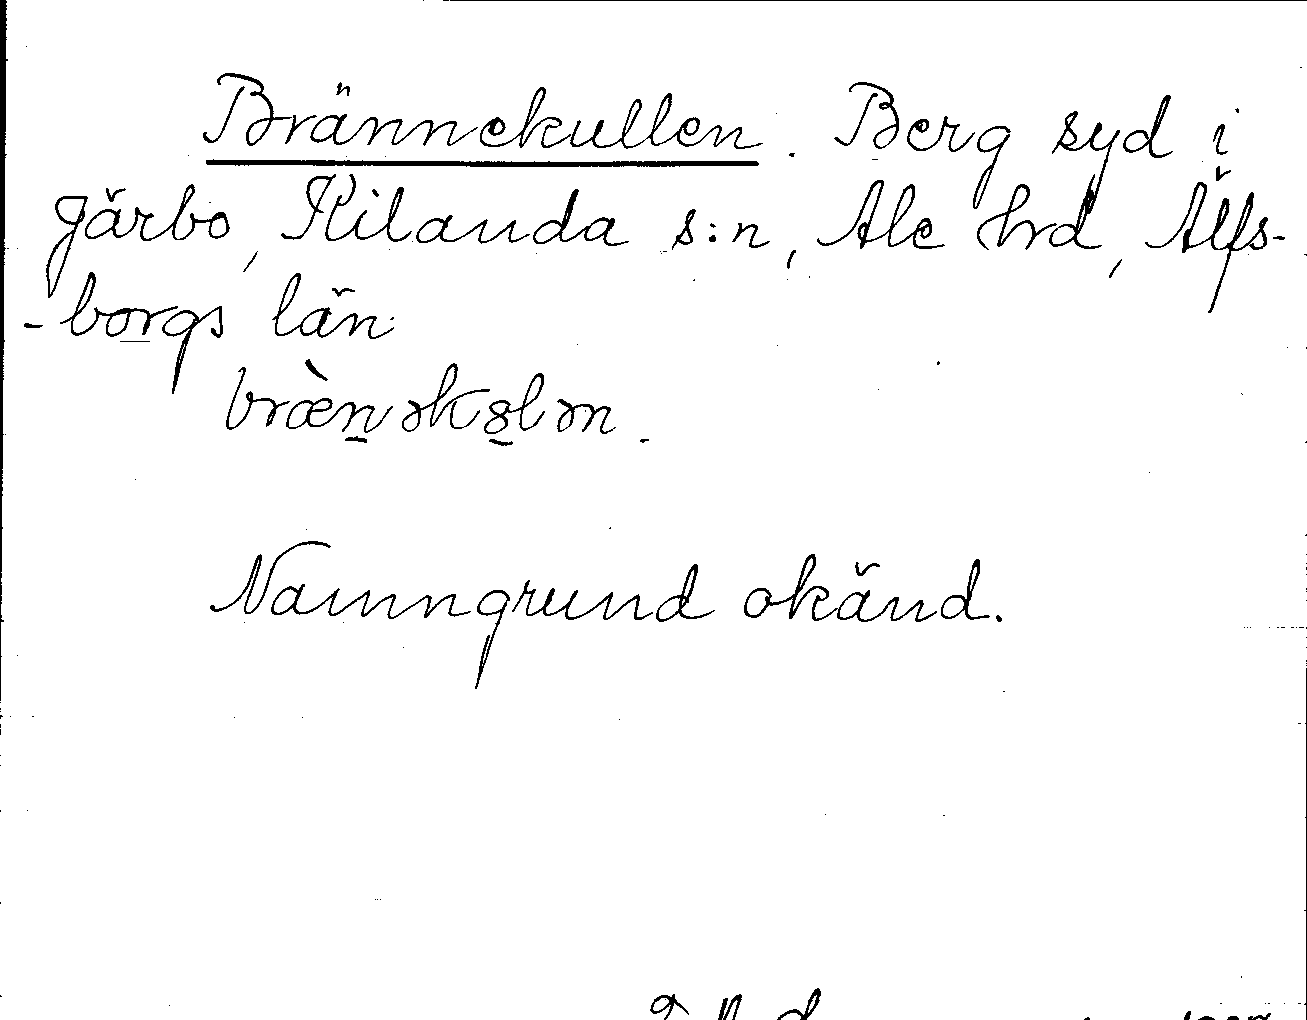 Brännekullen. Berg syd i
gärbo, Kilanda s:n, Ale hrd, Älfs-
-borgs län
bræ̀nəkslən.
Namngrund okänd.